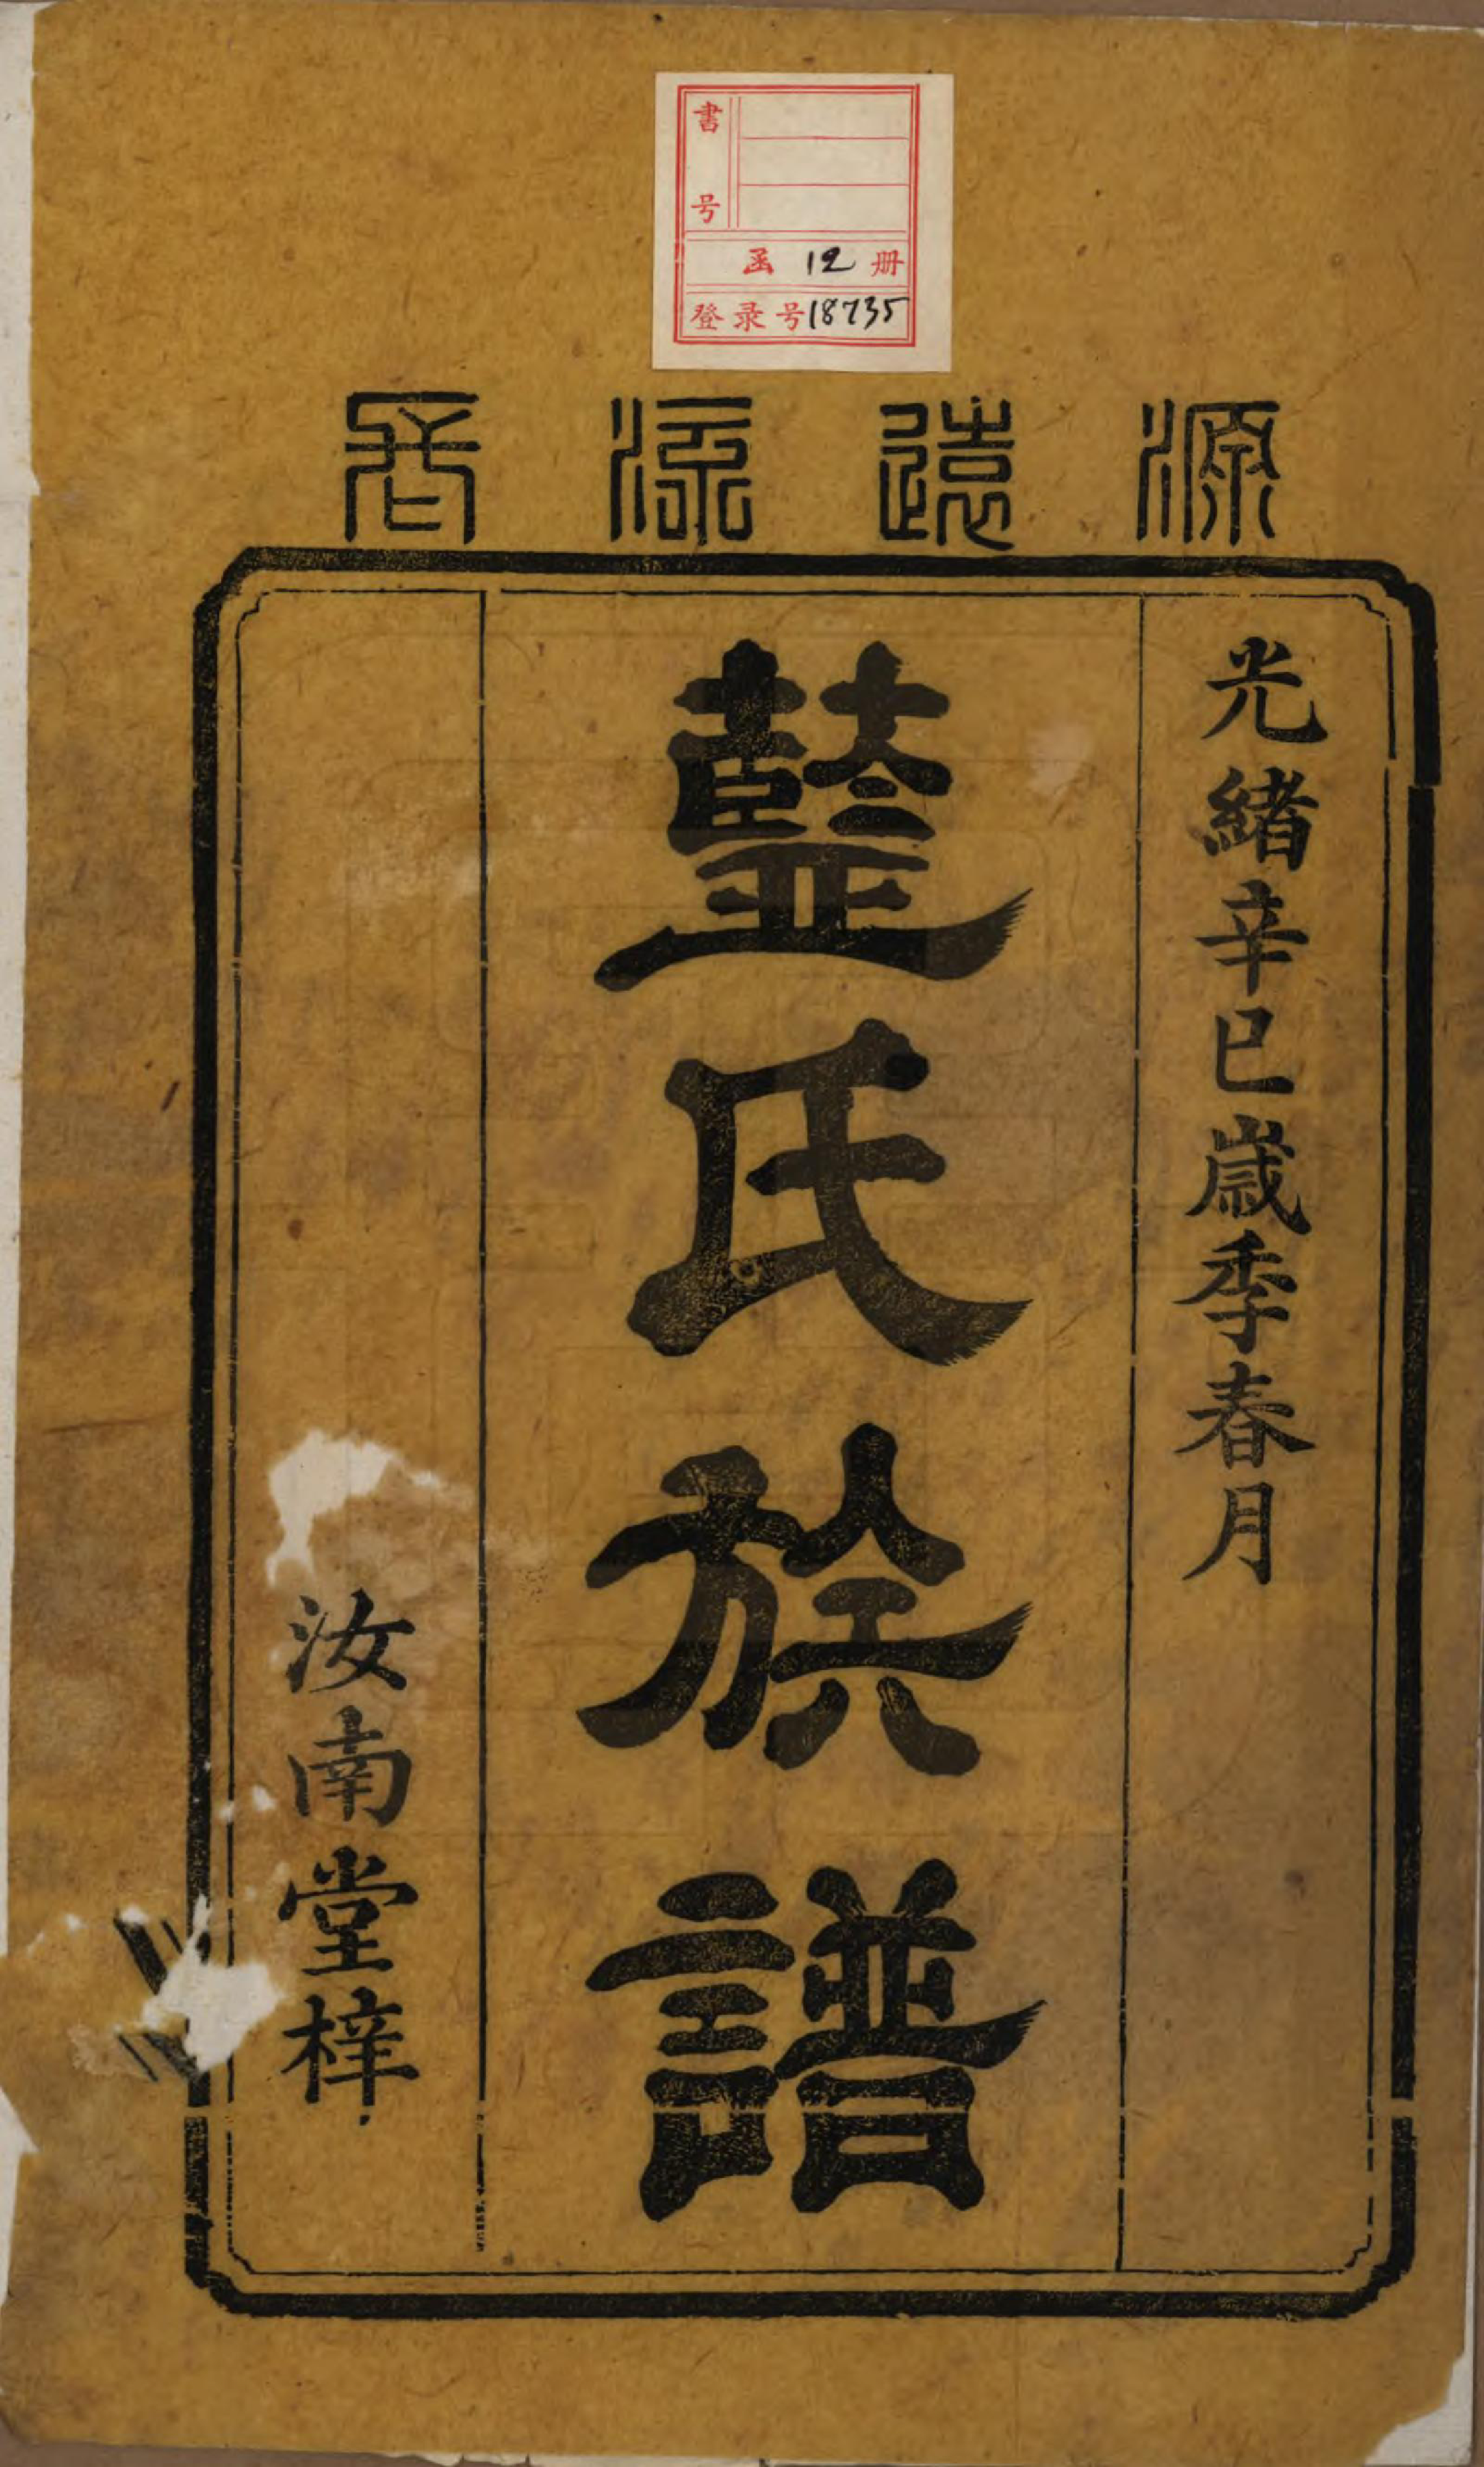 書号
函 12 册
登录号18735
源遠流長
光緒辛巳歲季春月
藍氏族譜
汝南堂梓